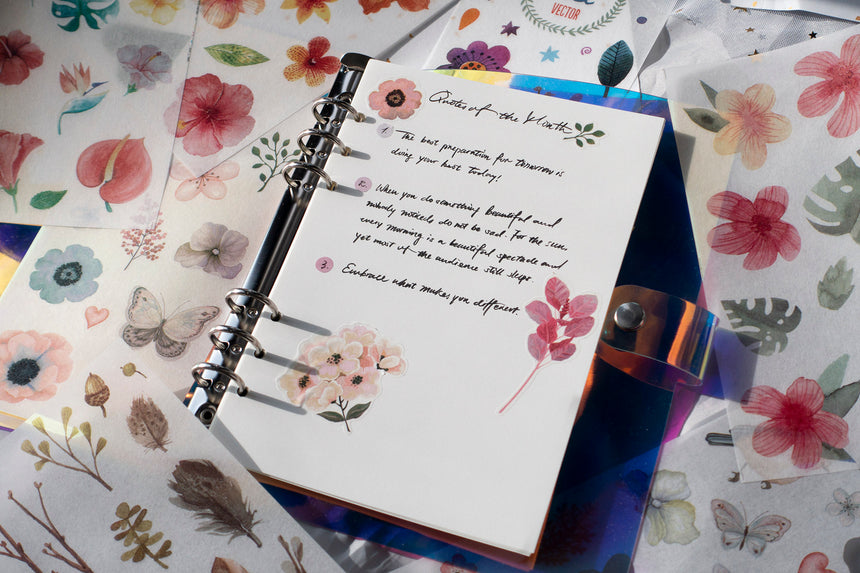 VECTOR
Quotes of the Month
1. The best preparation for tomorrow is
doing your best today!
2. When you do something beautiful and
nobody noticed, do not be sad. For the sun
every morning is a beautiful spectacle and
yet most of the audience still sleeps.
3. Embrace what makes you different.